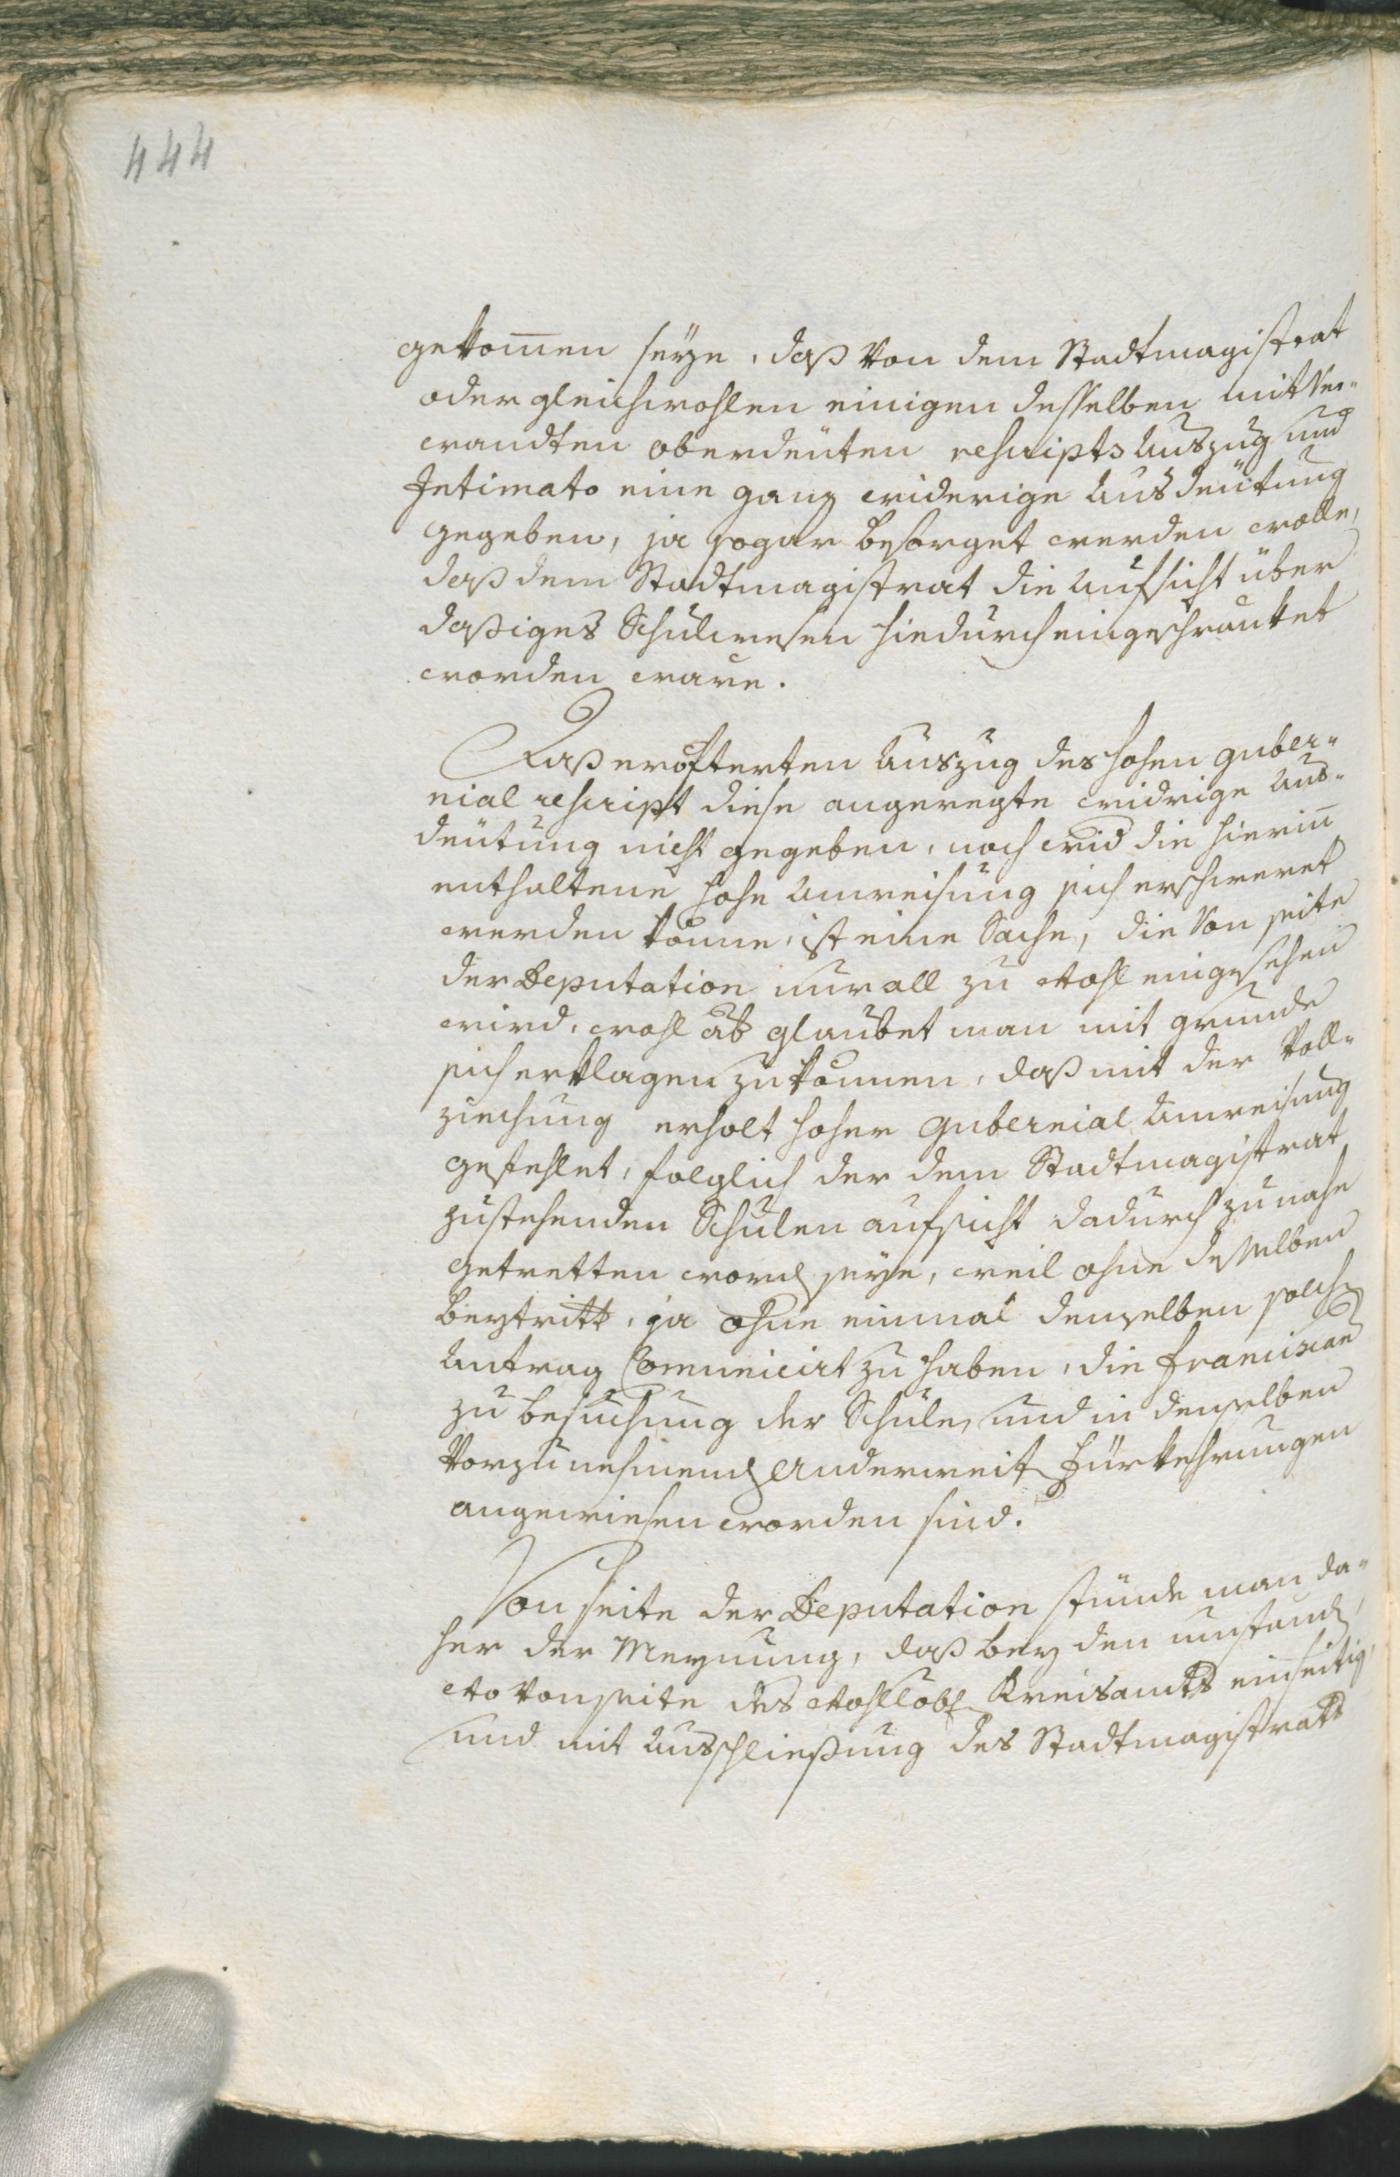 444
gekom̄en seÿe, daß von dem Stadtmagistrat
oder gleichwohlen einigen desselben mitver-
wandten oberdeüten rescripts Auszug und
Intimato eine ganz widerige Ausdeütung
gegeben, ja sogar besorget werden wolle,
daß dem Stadtmagistrat die Aufsicht über
daßiges Schulwesen hiedurch eingeschrancket
worden ware.
Daß eröfterten Auszug des hohen guber-
nial rescript diese angeregte widrige Aus-
deutung nicht gegeben, noch wid die hierin̄
enthaltene hohe Anweisung sich erschweret
werden könne, ist eine Sache, die von seite
der Deputation nur all zu wohl eingesehen
wird, wohl ab glaubet man mit grunde
sich erklagen zu können, daß mit der voll-
ziechung erholt hoher gubernial Anweisung
gefehlet, folglich der dem Stadtmagistrat
zustehenden Schulen aufsicht dadurch zu nahe
getretten word seÿe, weil ohne desselben
beytritt, ja ohne einmal denselben solch
Antrag Comunicirt zu haben, die franciscan
zu besuchung der Schule, und in denselben
vorzunehmend anderweit fürkehrungen
angewiesen worden sind.
Von seite der Deputation stünde man da-
her der Meynung, daß bey den umständ,
wo von seite des wohllöbl Kreisamts einseitig,
und mit Ausschließung des Stadtmagistrats